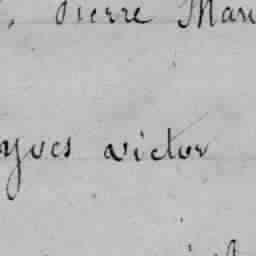 Pierre Mari
yves victor